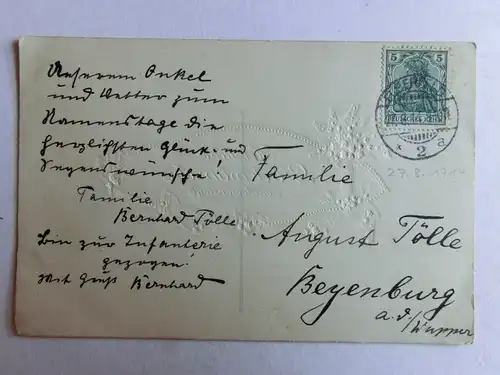 Unserem Onkel
und Vetter zum
Namenstage die
herzlichsten Glück- und
Segenswünsche!
Familie
Bernhard Tölle
Bin zur Infanterie
gezogen!
Mit Gruß Bernhard
5 5
DEUTSCHES REICH
* 2 a
27.8.1914
Familie
August Tölle
Beyenburg
a.d./Wupper